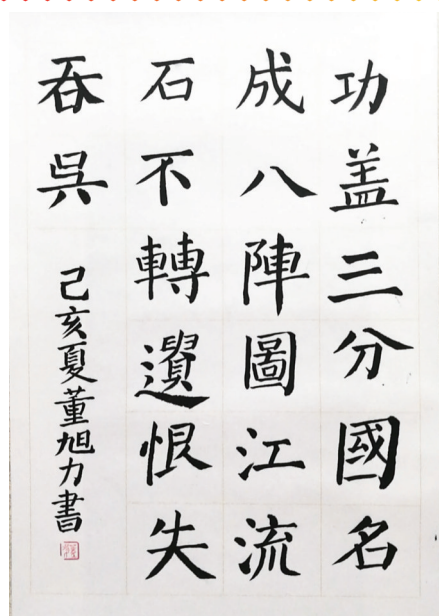 功盖三分國名
成八陣圖江流
石不轉遺恨失
吞吳
己亥夏董旭力書